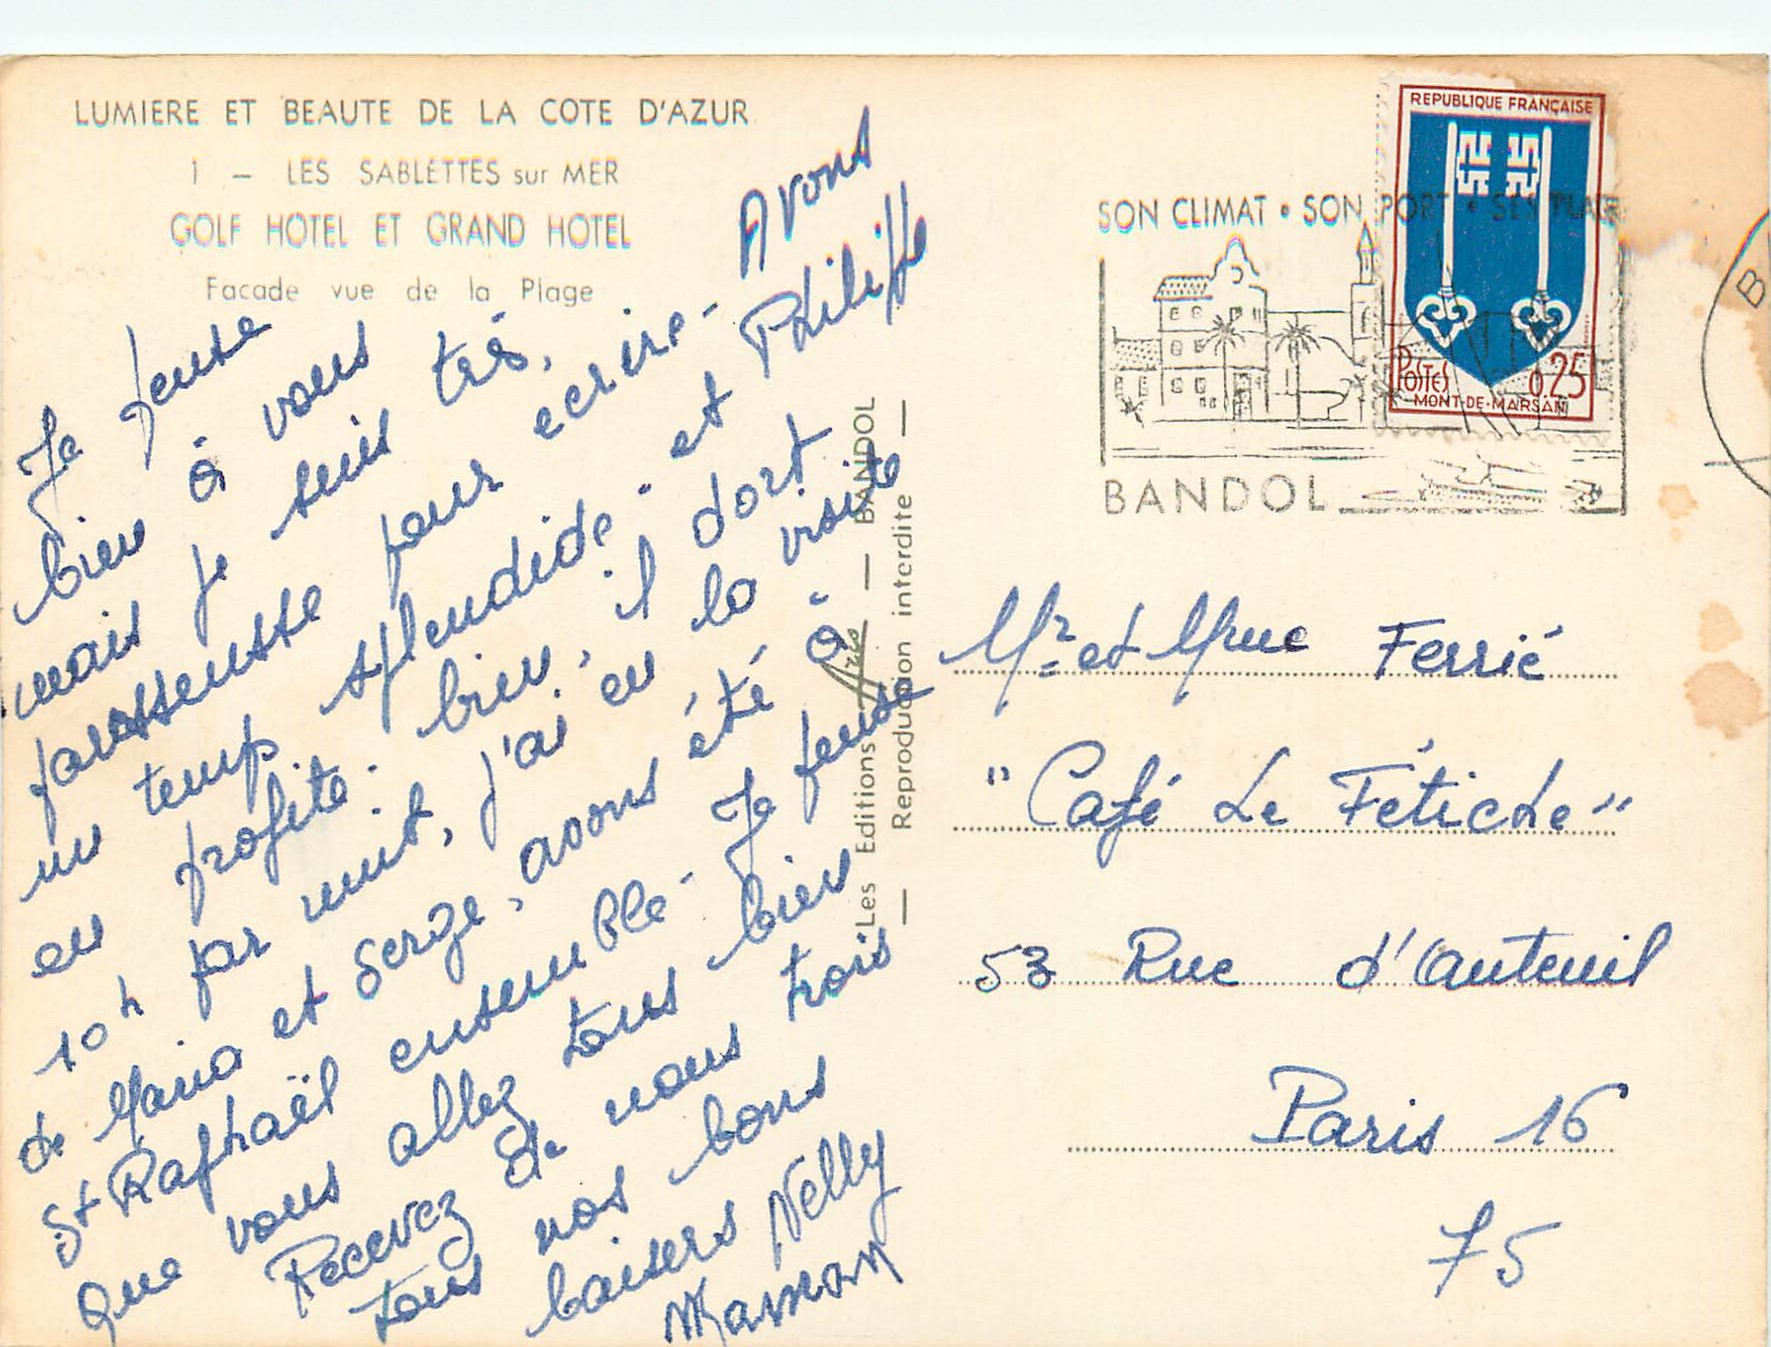 LUMIERE ET BEAUTE DE LA COTE D'AZUR
1 - LES SABLETTES sur MER
GOLF HOTEL ET GRAND HOTEL
Facade vue de la Plage
Je pense
bien à vous
mais je suis très,
paresseuse pour ecrire - Avons
un temp splendide - et Philippe
en profite bien, il dort
10h par nuit, j'ai eu la visite
de Maria et Serge, avons été à
St Raphaël ensemble - Je pense
que vous allez tous bien
Recevez de nous trois
tous nos bons
baisers Nelly
Les Editions - BANDOL
— Reproduction interdite —
SON CLIMAT • SON PORT • SES PLAGES
BANDOL
REPUBLIQUE FRANÇAISE
POSTES 0,25
MONT-DE-MARSAN
B
Mr et Mme Ferrié
"Café Le Fétiche"
53 Rue d'Auteuil
Paris 16
75